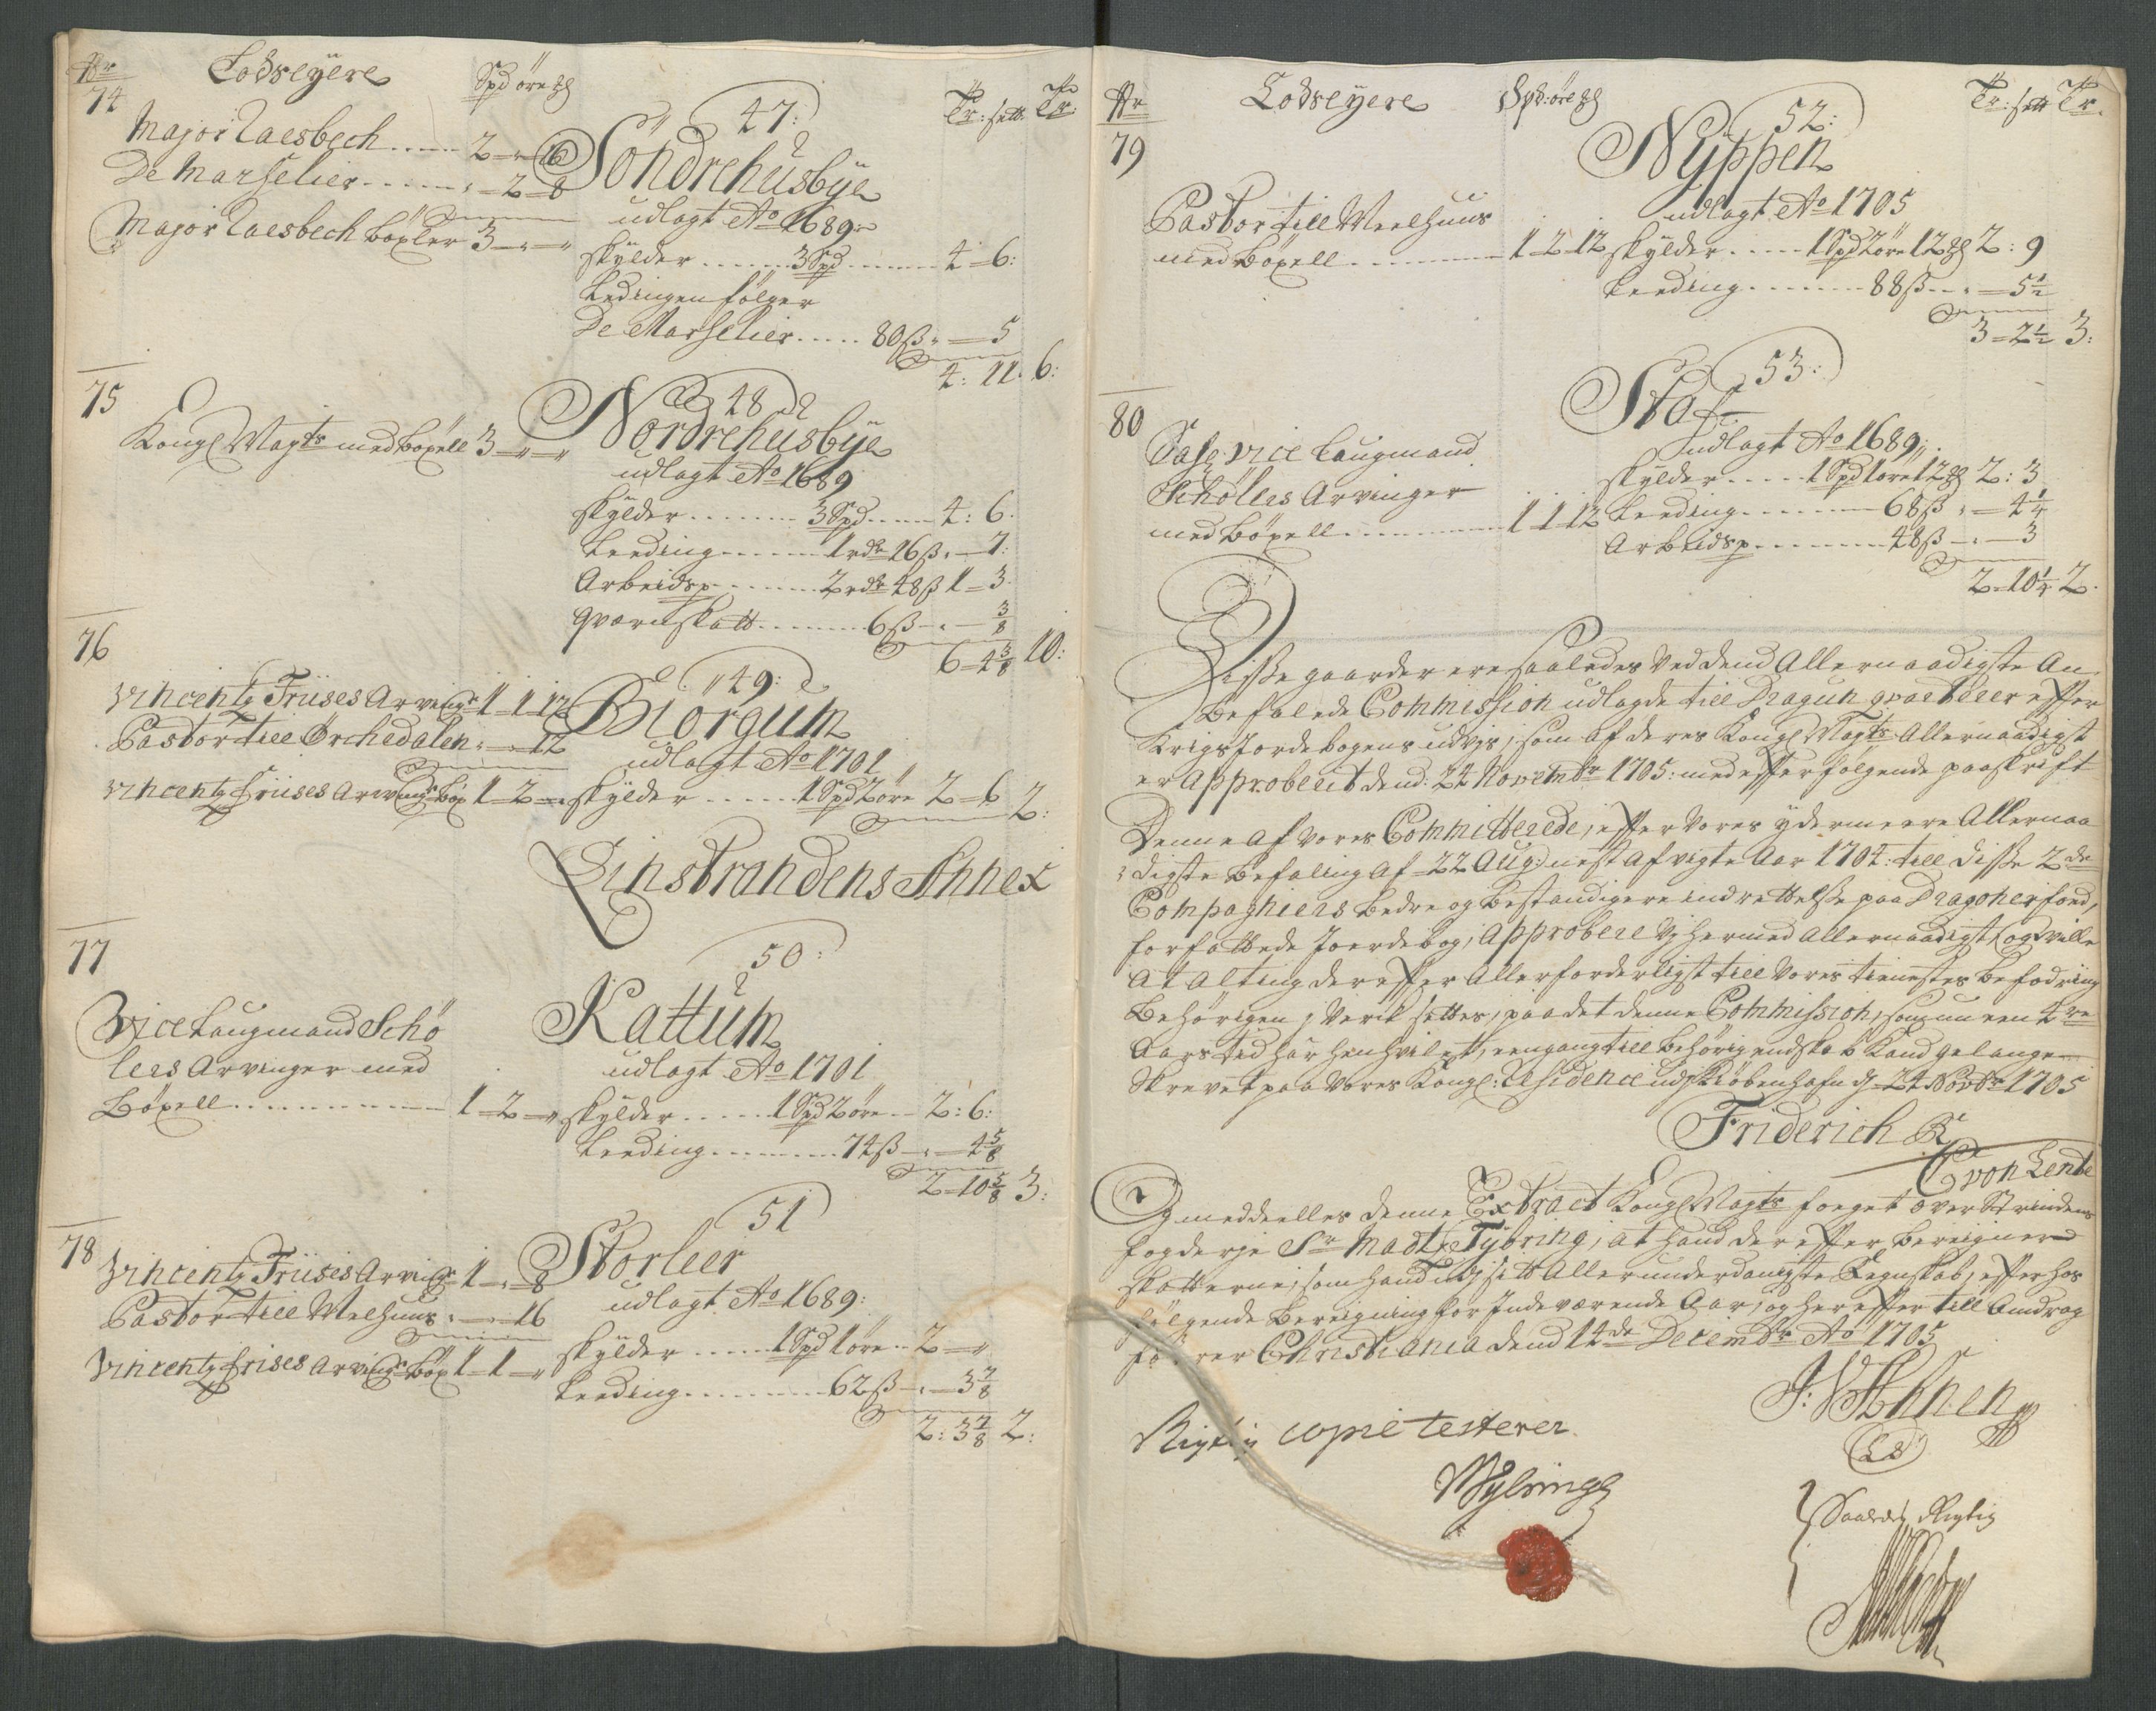 Nr Lodseyere Spd øre
74
47:
Major Laesbech ..... 2 - " 16
De Marselier ..... " - 2 - 8
Major Laesbech böxler 3 - " - "
Söndrehusbÿe
udlagt Ao 1689:
skÿlder ...... 3 Spd ...... 4 - 6:
Ledingen følger
De Marselier ..... 80 ß " - 5
4: 11. 6:
75
48
Kongl Maÿts med böxell 3 - " - "
Nordrehusbÿe
udlagt Ao 1689
skÿlder ...... 3 Spd ...... 4: 6.
Leeding ...... 1 rdr 16 ß " - 7:
Arbeidsp ...... 2 rdr 48 ß 1 - 3.
qvernskatt ...... 6 ß - " - 3/8
6 - 4 3/8 10:
76
49:
Vincentz Friises Arving 1 - 1 - 12
Pastor till Örchedalen " - " - 12
Vincentz Friises Arving Böx 1 - 2 - "
Biörgum
udlagt Ao 1701
skÿlder ...... 1 Spd 2 öre 2 - 6 2:
Linstrandens Annex
77
50:
Vice Laugmand Schö
lers Arvinger med
Böxell ............ 1 - 2 - "
Kattum
udlagt Ao 1701
skÿlder ..... 1 Spd 2 öre .. 2: 6:
Leeding ......... 74 ß - " - 4 5/8
2 - 10 5/8 3:
78
51
Vincentz Friises Arving 1 - " - 8
Pastor till Meelhuus " - " - 16
Vincentz Friises Arving Böx 1 - 1 - "
Storleer
udlagt Ao 1689:
skÿlder ..... 1 Spd 1 öre .. 2 - "
Leeding ......... 62 ß - " - 3 7/8
2: 3 7/8 2:
Nr Lodseyere Spd: øre
79
52:
Pastor till Meelhuus
med Böxell ......... 1 - 2 - 12
Nÿppen
udlagt Ao 1705
skÿlder ..... 1 Spd 2 öre 12 2: 9
Leeding ....... 88 ß - " - 5 1/2
3 - 2 1/2 3:
80
53:
Sal: vice Laugmand
Schöllers Arvinger
med Böxell ......... 1 1 12
Staf
udlagt Ao 1689:
skÿlder ..... 1 Spd 1 öre 12 2: 3
Leeding ......... 68 ß " - 4 1/4
Arbeidsp ......... 48 ß - " - 3
2 - 10 1/4 2.
Disse gaarder ere saaledes Ved dend Allernaadigste An
befalede Commission udlagde till Dragun qvarteer efter
Krigs Jorde bogens udvjs, som af deres Kongl Maÿts Allernaadigst
er Approberit dend: 24 Novembr 1705: med efterfølgende paaskrift
Denne af Vores Committerede, efter Vores ydermeere Allernaa
digste Befaling af 22 Aug: nest afvigte Aar 1704: till disse 2de
Compagniers bedre og bestandigere indrettelse paa Dragoner fond,
forfattede Joerdebog, Approbere Vj hermed Allernaadigst, og ville
at alting derefter Allerforderligst till Vores tienestes befodring
Behörigen i Verk settes, paa det denne Commission, som nu een 4re
Aars tid har henhvilet, eengang till behörig endskab kand gelange
Skrevet paa Vores Kongl: Residence udj Kiöbenhafn d 24 Novbr 1705
Friderich R
C von Lente
Og meddeelles denne Extract Kongl Maÿts foeget over Strindens
fogderje Sr Madtz Tÿbring, at hand der efter bereigner
skatterne, som hand udj sit Allerunderdanigste Regnskab, efter hos
følgende bereigning for Indeværende Aar, og herefter till Andrag
fører Christiania dend 14de Decembr Ao 1705
J: V: Ahnen
(LS)
Rigtig copie testerer
Saaledes Rigtig